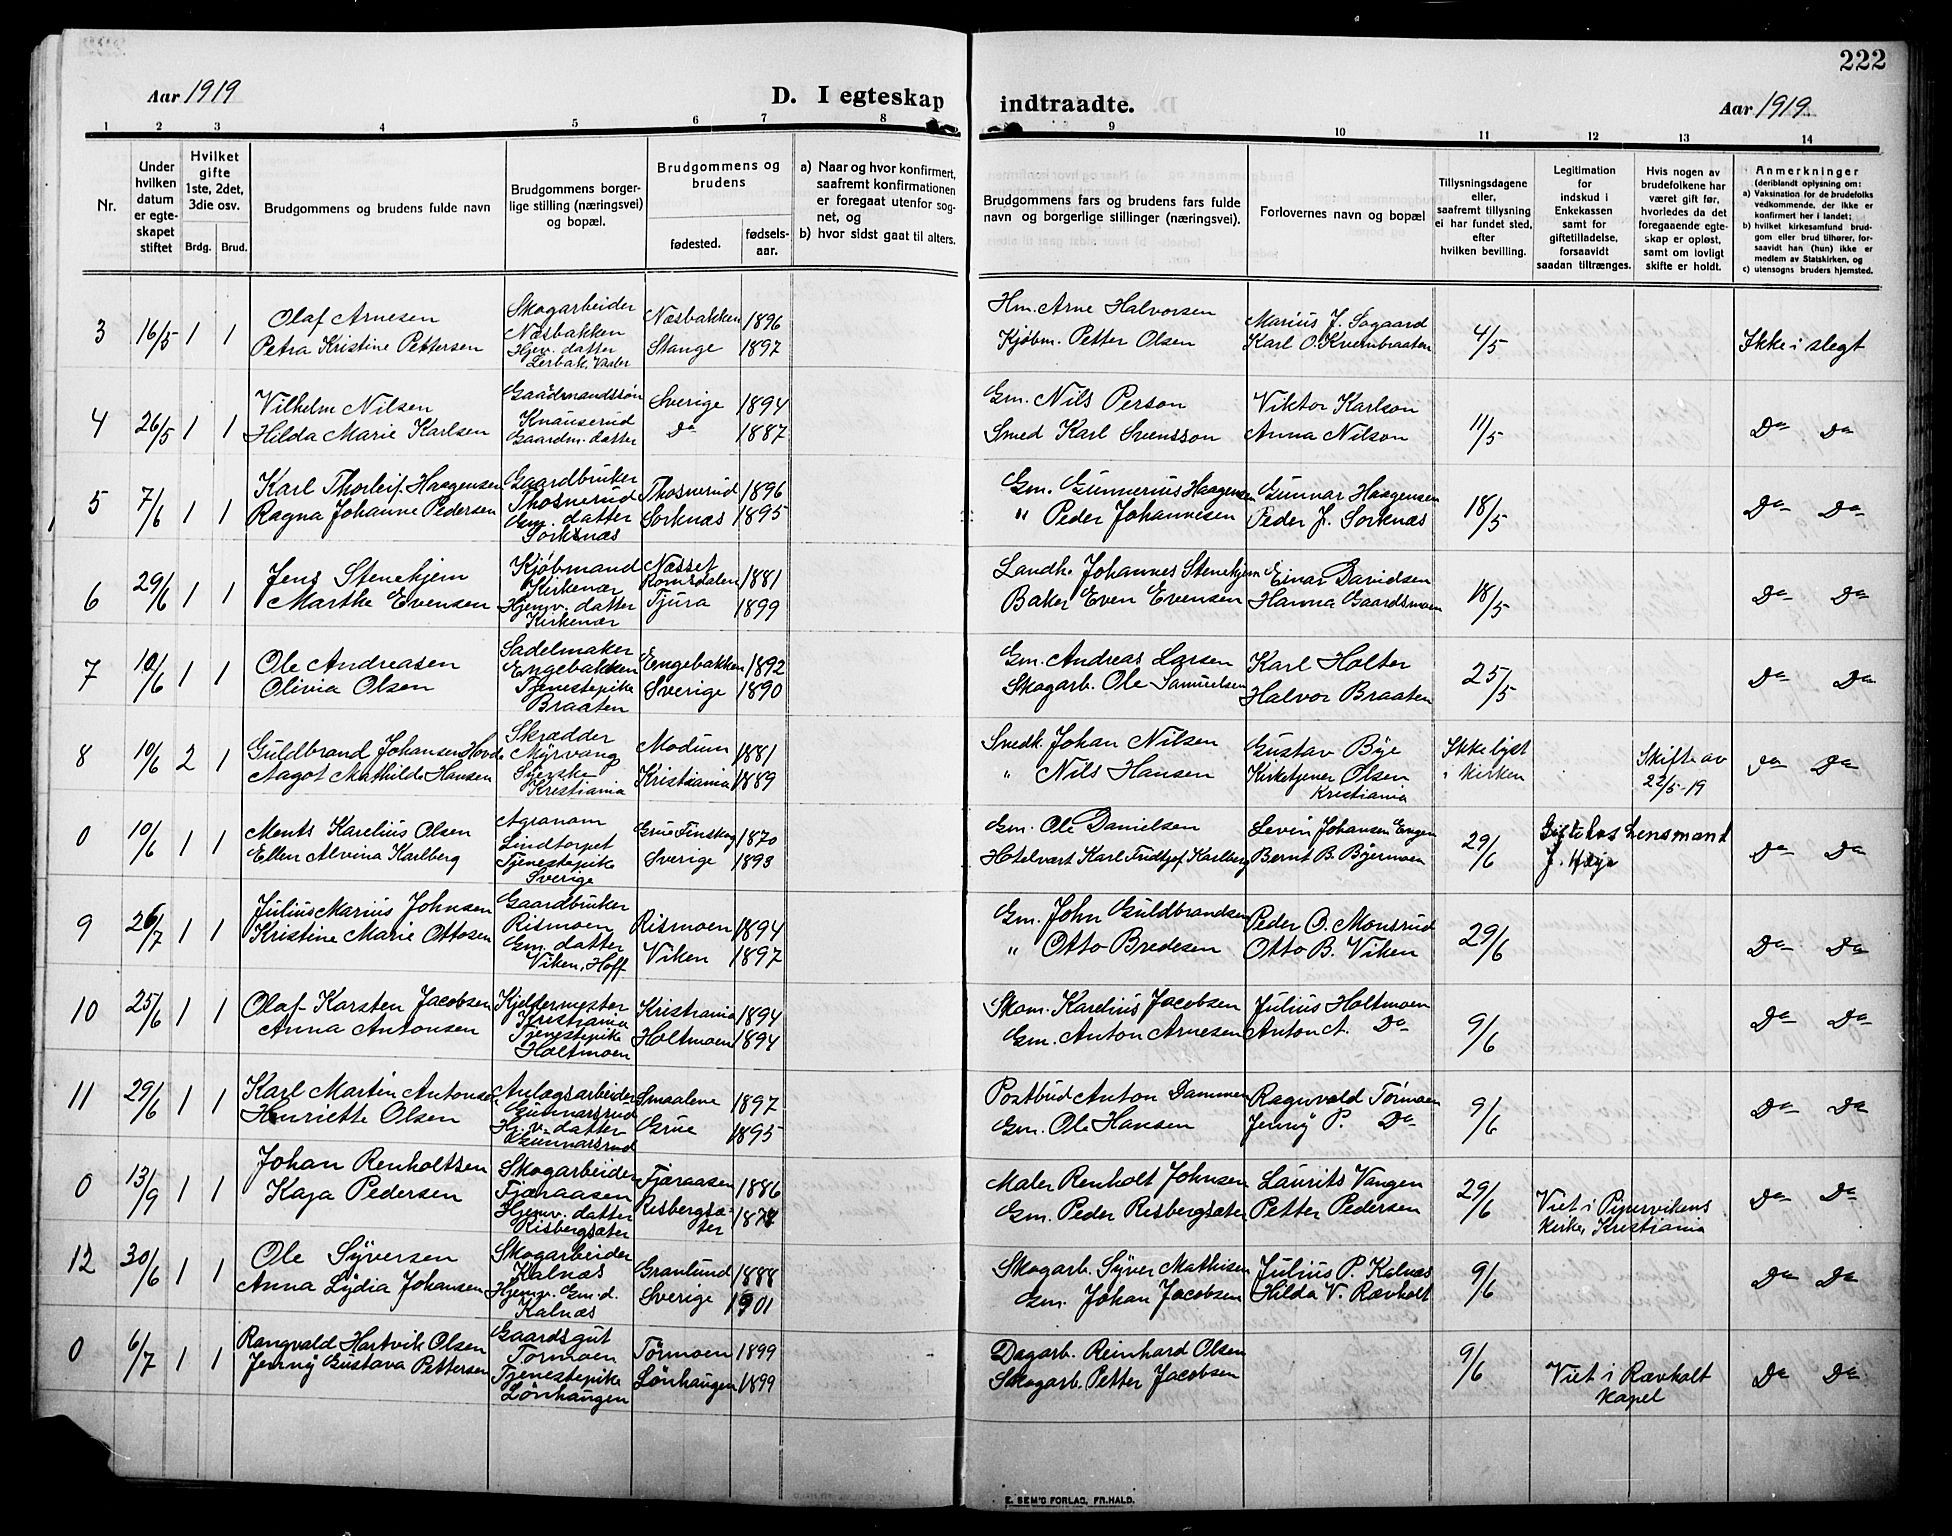 222
Aar 1919
D. I egteskap indtraadte.
Aar 1919.
1 2 3 4 5 6 7 8 9 10 11 12 13 14
Nr.
Under hvilken datum er egteskapet stiftet
Hvilket gifte 1ste, 2det, 3die osv.
Brdg. Brud.
Brudgommens og brudens fulde navn
Brudgommens borgerlige stilling (næringsvei) og bopæl.
Brudgommens og brudens
fødested.
fødselsaar.
a) Naar og hvor konfirmert, saafremt konfirmationen er foregaat utenfor sognet, og
b) hvor sidst gaat til alters.
Brudgommens fars og brudens fars fulde navn og borgerlige stillinger (næringsvei).
Forlovernes navn og bopæl
Tillysningsdagene eller, saafremt tillysning ei har fundet sted, efter hvilken bevilling.
Legitimation for indskud i Enkekassen samt for giftetilladelse, forsaavidt saadan tiltrænges.
Hvis nogen av brudefolkene har været gift før, hvorledes da det foregaaende egteskap er opløst, samt om lovligt skifte er holdt.
Anmerkninger (deriblandt oplysning om: a) Vaksination for de brudefolks vedkommende, der ikke er konfirmert her i landet; b) hvilket kirkesamfund brudgom eller brud tilhører, forsaavidt han (hun) ikke er medlem av Statskirken, og c) utensogns bruders hjemsted.
3 16/5 1 1
Olaf Arnesen
Petra Kristine Pettersen
Skogarbeider
Næsbakken
Hjev. datter
Lerbak, Vaaler
Næsbakken 1896
Stange 1897
Hm. Arne Halvorsen
Kjøbm. Petter Olsen
Marius J. Sogaard
Karl O. Kvernbraaten
4/5
Ikke i slegt
4 26/5 1 1
Vilhelm Nilsen
Hilda Marie Karlsen
Gaardmandssøn
Knauserud
Gaardm. datter
Sverige 1894
Do 1887
Gm. Nils Person
Smed Karl Svensson
Viktor Karlson
Anna Nilson
11/5
Do Do
5 7/6 1 1
Karl Thorleif Haagensen
Ragna Johanne Pedersen
Gaardbruker
Thosnerud
Gm. datter
Sorknæs
Thosnerud 1896
Sorknæs 1895
Gm. Gunnerius Haagensen
" Peder Johannesen
Gunnar Haagensen
Peder J. Sorknæs
18/5
Do Do
6 29/6 1 1
Jens Stenehjem
Marthe Evensen
Kjøbmand
Kirkenær
Hjemv. datter
Kirkenær
Næsset
Romsdalen 1881
Tjura 1899
Landh. Johannes Stenehjem
Baker Even Evensen
Einar Davidsen
Hanna Gaardsmoen
18/5
Do Do
7 10/6 1 1
Ole Andreasen
Olivia Olsen
Sadelmaker
Engebakken
Tjenestepike
Braaten
Engebakken 1892
Sverige 1890
Gm. Andreas Larsen
Skogarb. Ole Samuelsen
Karl Holter
Halvor Braaten
25/5
Do Do
8 10/6 2 1
Guldbrand Johansen Hovde
Aagot Mathilde Hansen
Skrædder
Myrvang
Syerske
Kristiania
Modum 1881
Kristiania 1889
Snedk. Johan Nilsen
" Nils Hansen
Gustav Bye
Kirketjener Olsen
Kristiania
Ikke lyst
i kirken
Skifte av
22/5-19
Do Do
0 10/6 1 1
Ments Karelius Olsen
Ellen Alvina Karlberg
Agronom
Lindtorpet
Tjenestepike
Sverige
Grue Finskog 1870
Sverige 1893
Gm. Ole Danielsen
Hotelvært Karl Fridtjef Karlberg
Levin Johansen Engen
Bernt B. Byermoen
29/6
Gift hos Lensmand
J. Høye
Do Do
9 26/7 1 1
Julius Marius Johnsen
Kristine Marie Ottosen
Gaardbruker
Rismoen
Gm. datter
Viken, Hoff
Rismoen 1894
Viken 1897
Gm. John Guldbrandsen
" Otto Bredesen
Peder O. Monsrud
Otto B. Viken
29/6
Do Do
10 25/6 1 1
Olaf Karsten Jacobsen
Anna Antonsen
Kjeldermester
Kristiania
Tjenestepike
Holtmoen
Kristiania 1894
Holtmoen 1894
Skom. Karelius Jacobsen
Gm. Anton Arnesen
Julius Holtmoen
Anton A. Do
9/6
Do Do
11 29/6 1 1
Karl Martin Antonsen
Henriette Olsen
Anlægsarbeider
Gunnarsrud
Hj. v. datter
Gunnarsrud
Smaalene 1897
Grue 1895
Postbud Anton Dammen
Gm. Ole Hansen
Ragnvald Tørmoen
Jenny P. Do
9/6
Do Do
0 13/9 1 1
Johan Renholtsen
Kaja Pedersen
Skogarbeider
Fjæraasen
Hjemv. datter
Risbergsæter
Fjæraasen 1886
Risbergsæter 1878
Maler Renholt Johnsen
Gm. Peder Risbergsæter
Laurits Vangen
Petter Pedersen
29/6
Viet i Pipervikens
kirke, Kristiania
Do Do
12 30/6 1 1
Ole Syversen
Anna Lydia Johansen
Skogarbeider
Kalnæs
Hjemv. Gm. d.
Kalnæs
Granlund 1888
Sverige 1901
Skogarb. Syver Mathisen
Gm. Johan Jacobsen
Julius P. Kalnæs
Hilda V. Rævholt
9/6
Do Do
0 6/7 1 1
Rangvald Hartvik Olsen
Jenny Gustava Pettersen
Gaardsgut
Tormoen
Tjenestepike
Lønhaugen
Tørmoen 1899
Lønhaugen 1899
Dagarb. Reinhard Olsen
Skogarb. Petter Jacobsen
9/6
Viet i Rævholt
Kapel
Do Do
E. SEM'S FORLAG, FR.HALD.